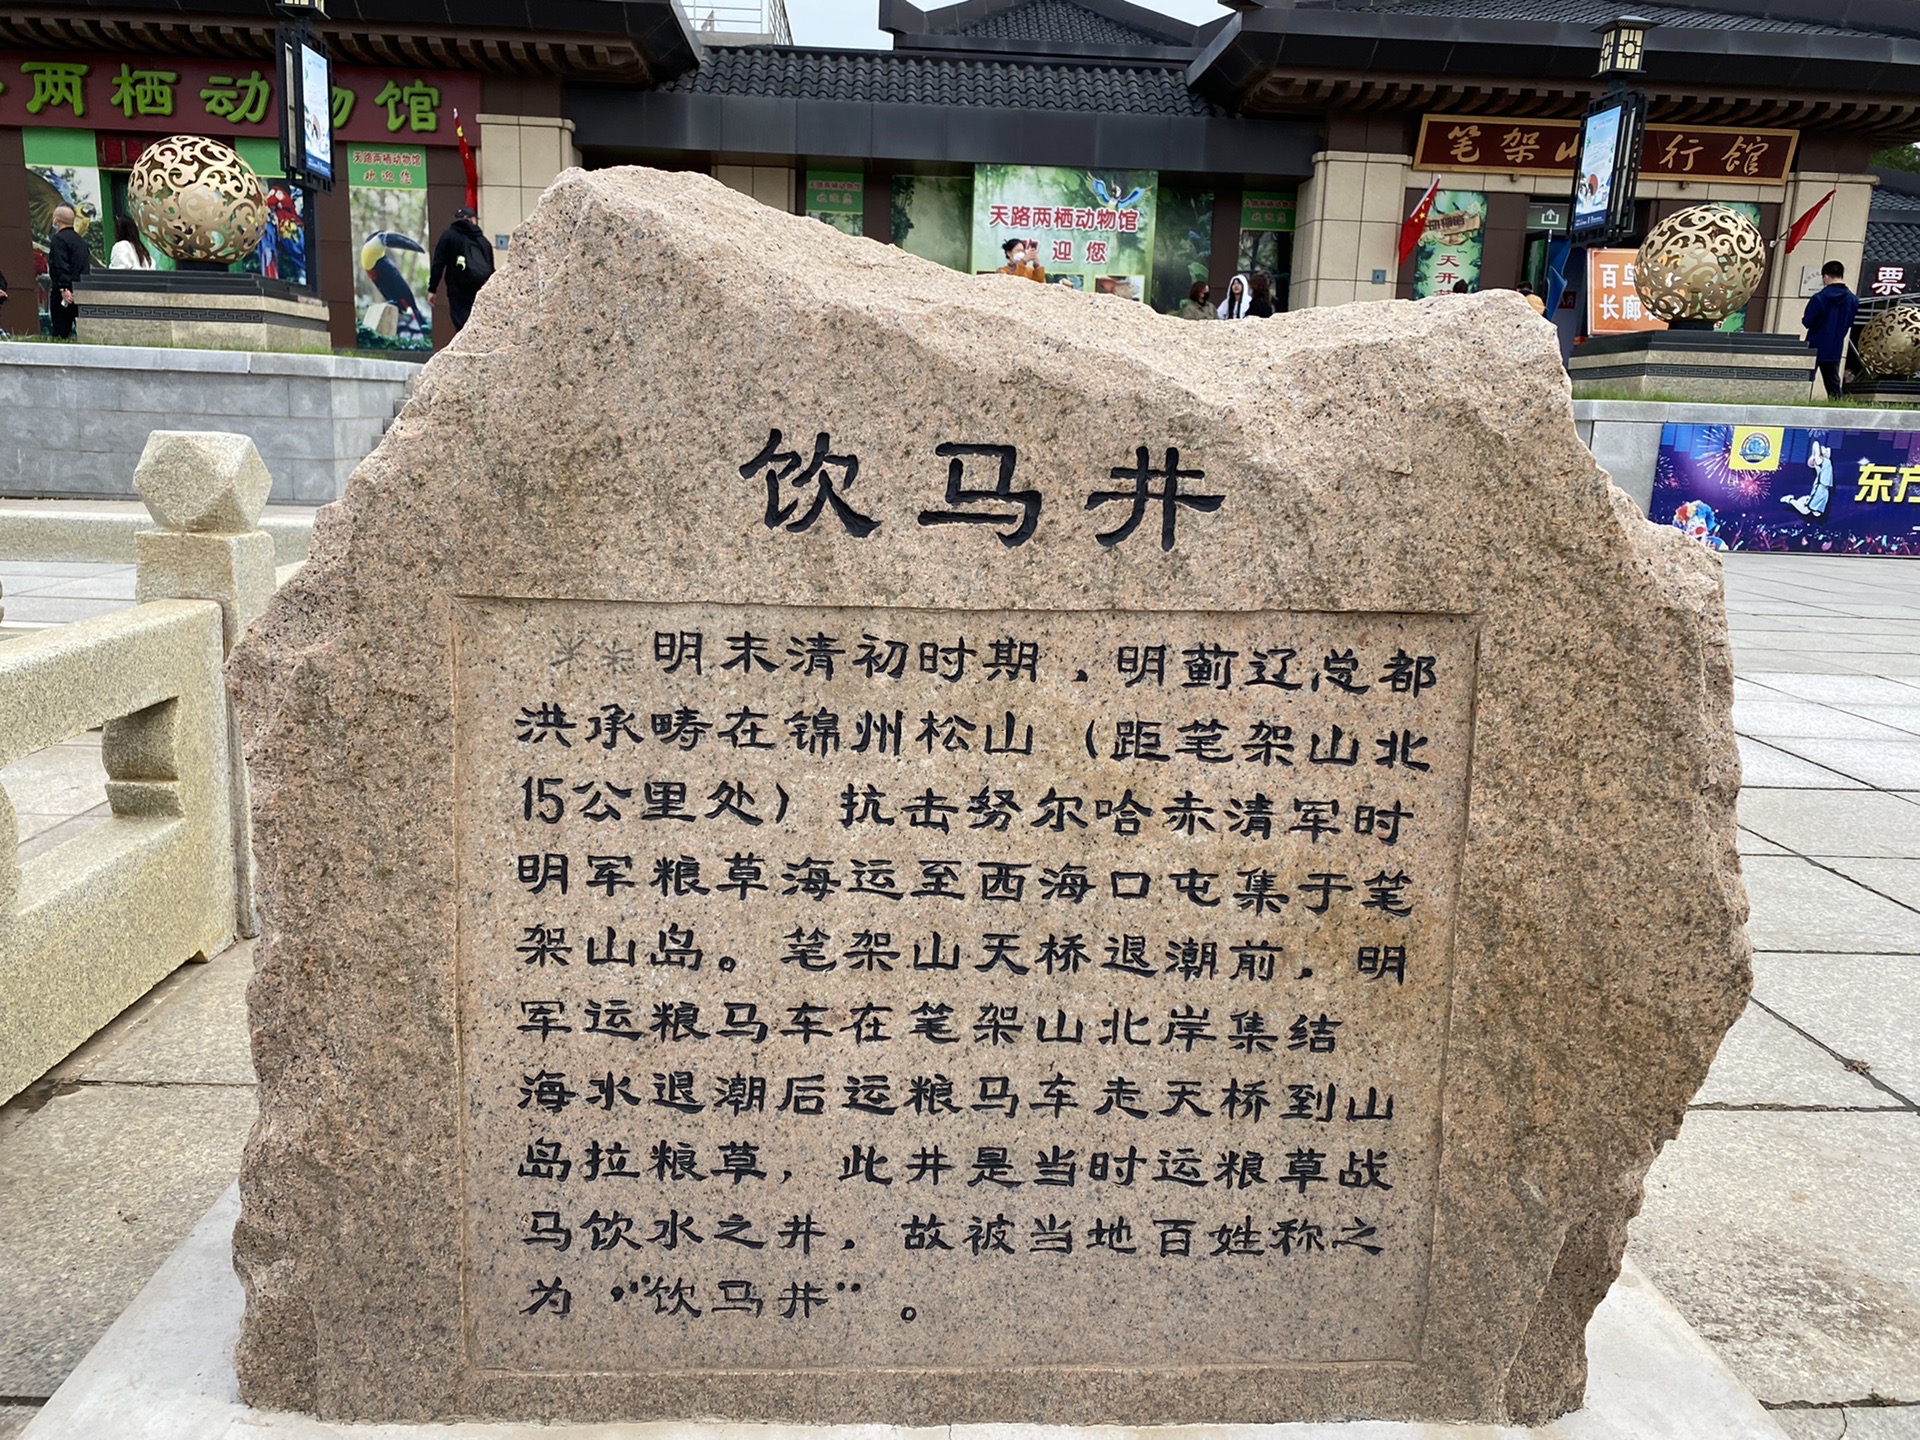 两栖动物馆
天路两栖动物馆
欢迎您
天路两栖动物馆
欢迎您
天路两栖动物馆
迎您
笔架山行馆
天开
百鸟
长廊
票
东方
饮马井
明末清初时期，明蓟辽总都
洪承畴在锦州松山（距笔架山北
15公里处）抗击努尔哈赤清军时
明军粮草海运至西海口屯集于笔
架山岛。笔架山天桥退潮前，明
军运粮马车在笔架山北岸集结
海水退潮后运粮马车走天桥到山
岛拉粮草，此井是当时运粮草战
马饮水之井，故被当地百姓称之
为“饮马井”。